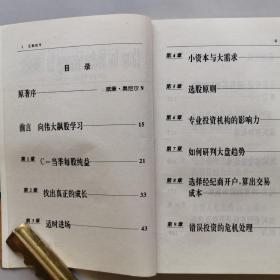 目 录
原著序
威廉·奥尼尔 9
前言 向伟大飙股学习 15
第1章 C—当季每股纯益 21
第2章 找出真正的成长 33
第3章 适时进场 43
第4章 小资本与大需求
第5章 选股原则
第6章 专业投资机构的影响力
第7章 如何研判大盘趋势
第8章 选择经纪商开户，算出交易
成本
第9章 错误投资的危机处理